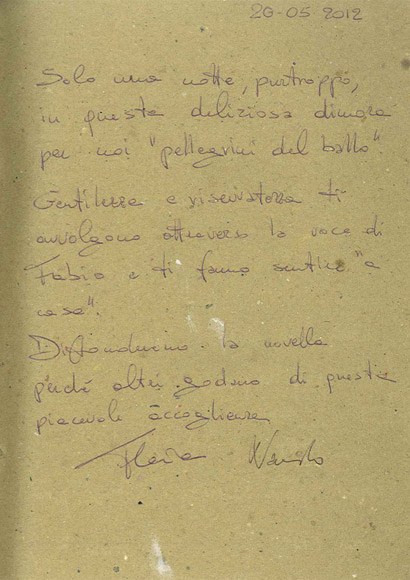 20-05 2012
Solo una notte, purtroppo,
in questa deliziosa dimora
per noi "pellegrini del ballo".
Gentilezza e riservatezza ti
avvolgono attraverso la voce di
Fabio e ti fanno sentire "a
casa".
Diffonderemo la novella
perché altri godano di questa
piacevole accoglienza
Flavia